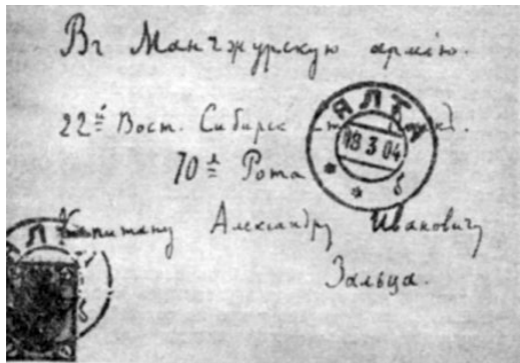 Въ Манчжурскую армію.
22й Вост. Сибирск. полкъ.
ЯЛТА
18 3 04
* * б
10я Рота
Капитану Александру Ивановичу
Зальца.
ЯЛТ
б